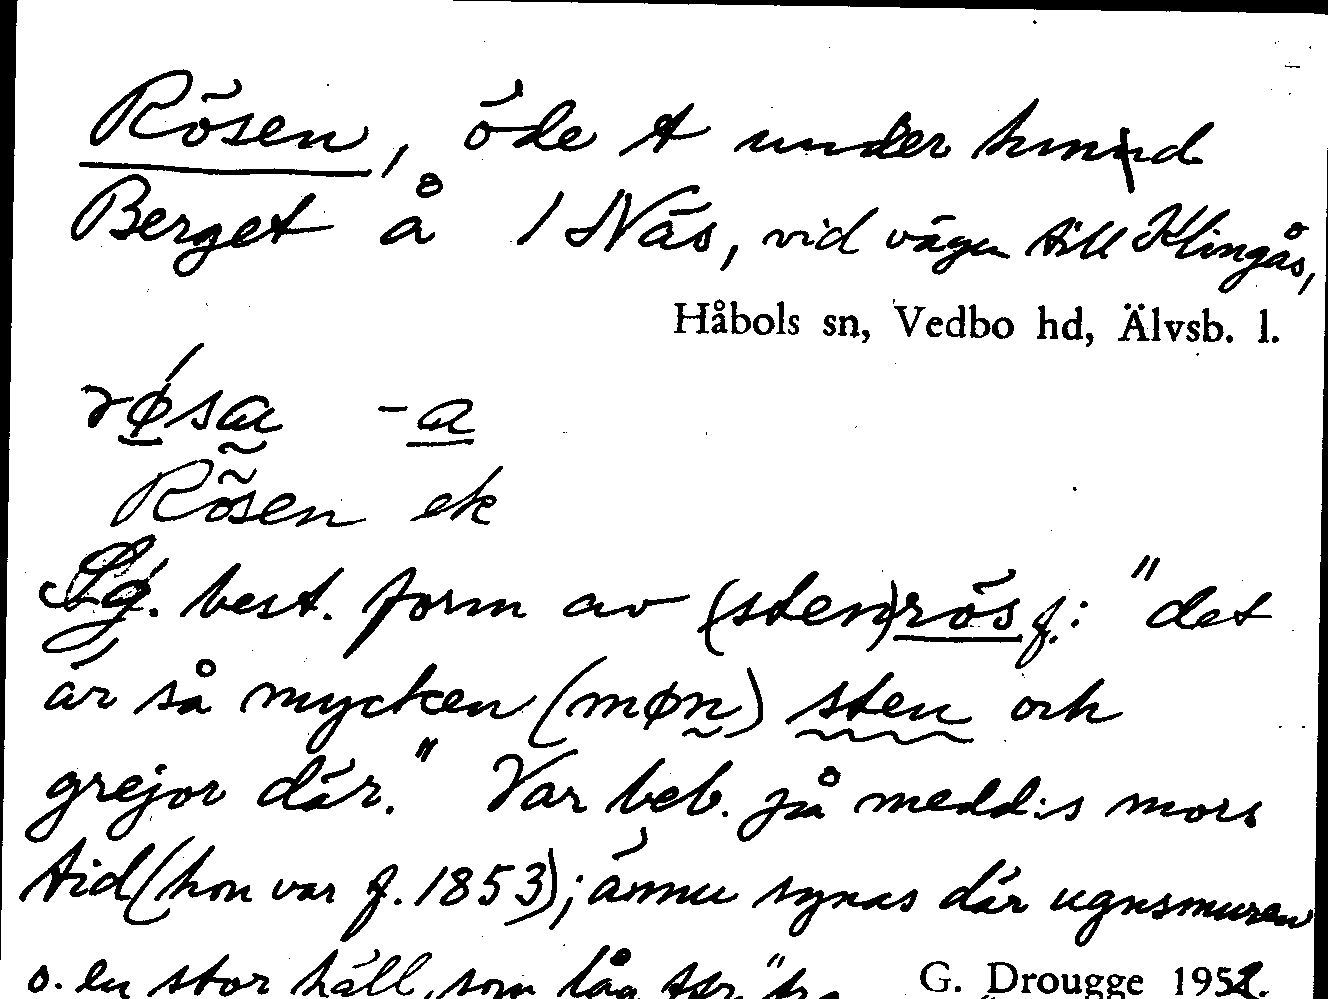 Rösen, öde t under hmnd
Berget å 1 Näs, vid vägen till Klingås,
Håbols sn, Vedbo hd, Älvsb. l.
røsa -a
Rösen ek
Sg. best. form av (sten)rös f.: "det
är så mycken (møn) sten och
grejor där." Var beb. på medd:s mors
tid (hon var f. 1853); ännu synas där ugnsmuren
o. en stor häll, som låg
G. Drougge 1952.